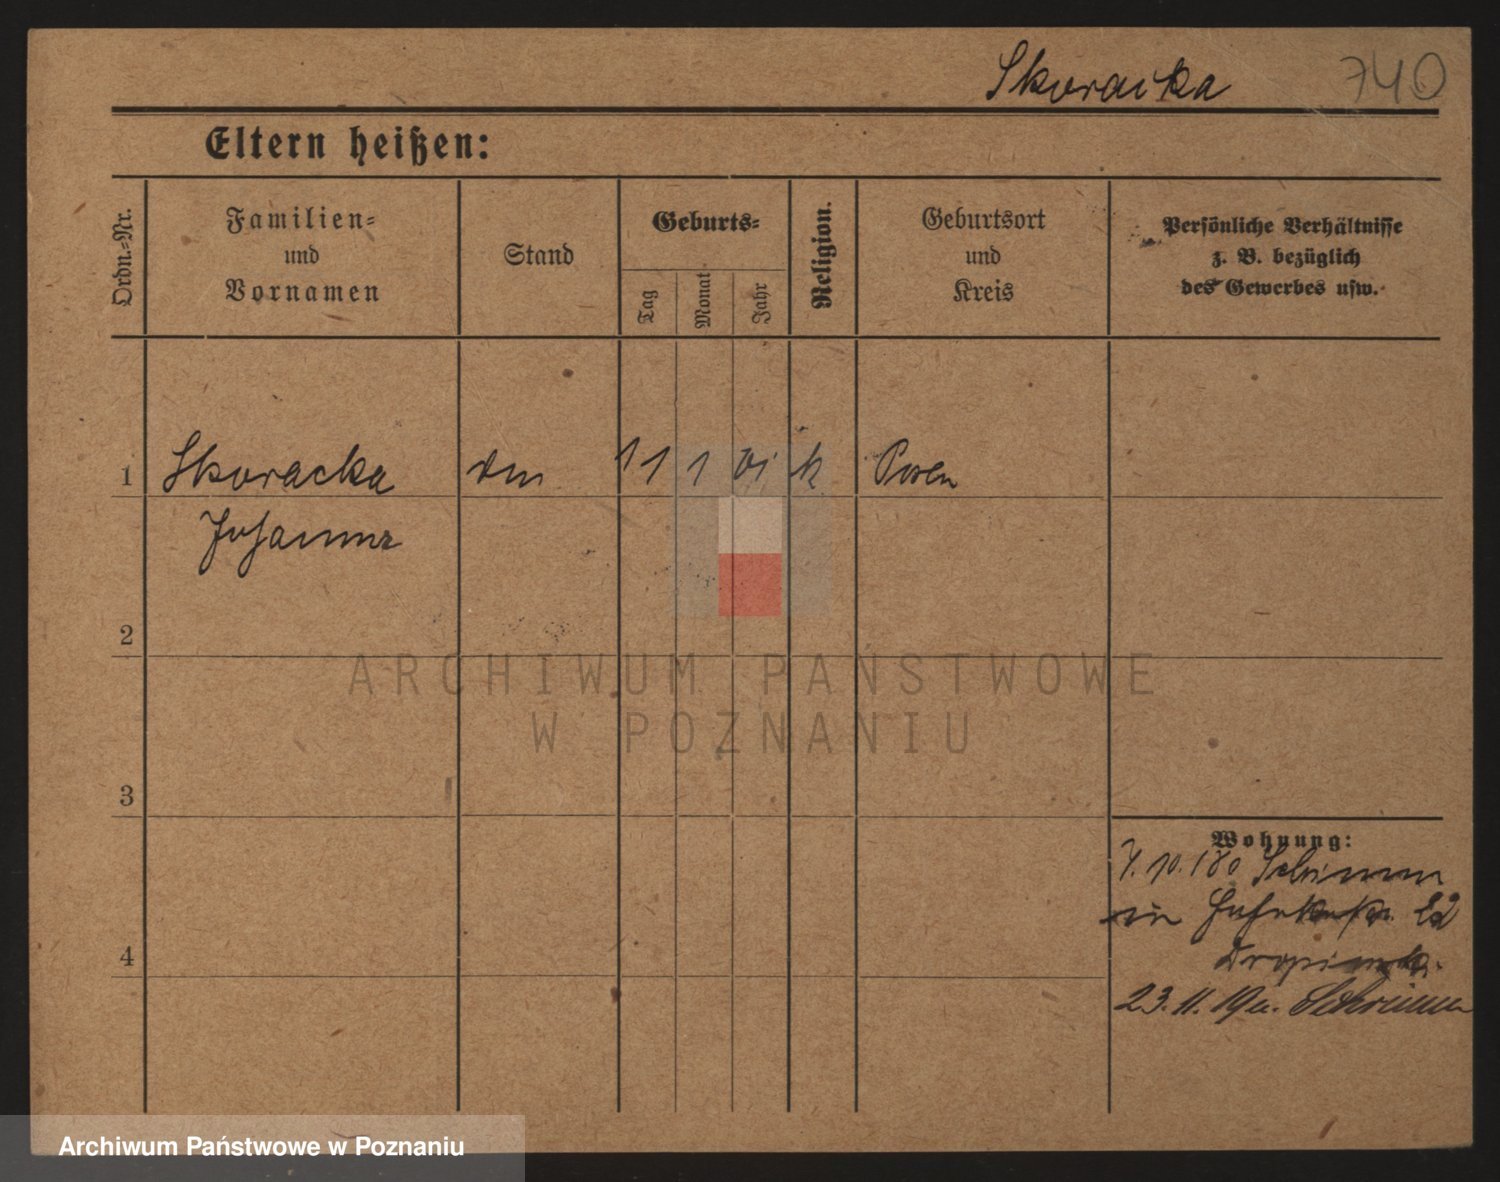 Skoracka 740
Eltern heißen:
Ordn.-Nr.
Familien-
und
Vornamen
Stand
Geburts-
Tag
Monat
Jahr
Religion.
Geburtsort
und
Kreis
Persönliche Verhältnisse
z. B. bezüglich
des Gewerbes usw.
1 Skoracka 11 1 01 k Posen
Johanna
2
3
4
Wohnung:
Schrimm
22
23. 11. 19 Schrimm
ARCHIWUM PAŃSTWOWE
W POZNANIU
Archiwum Państwowe w Poznaniu